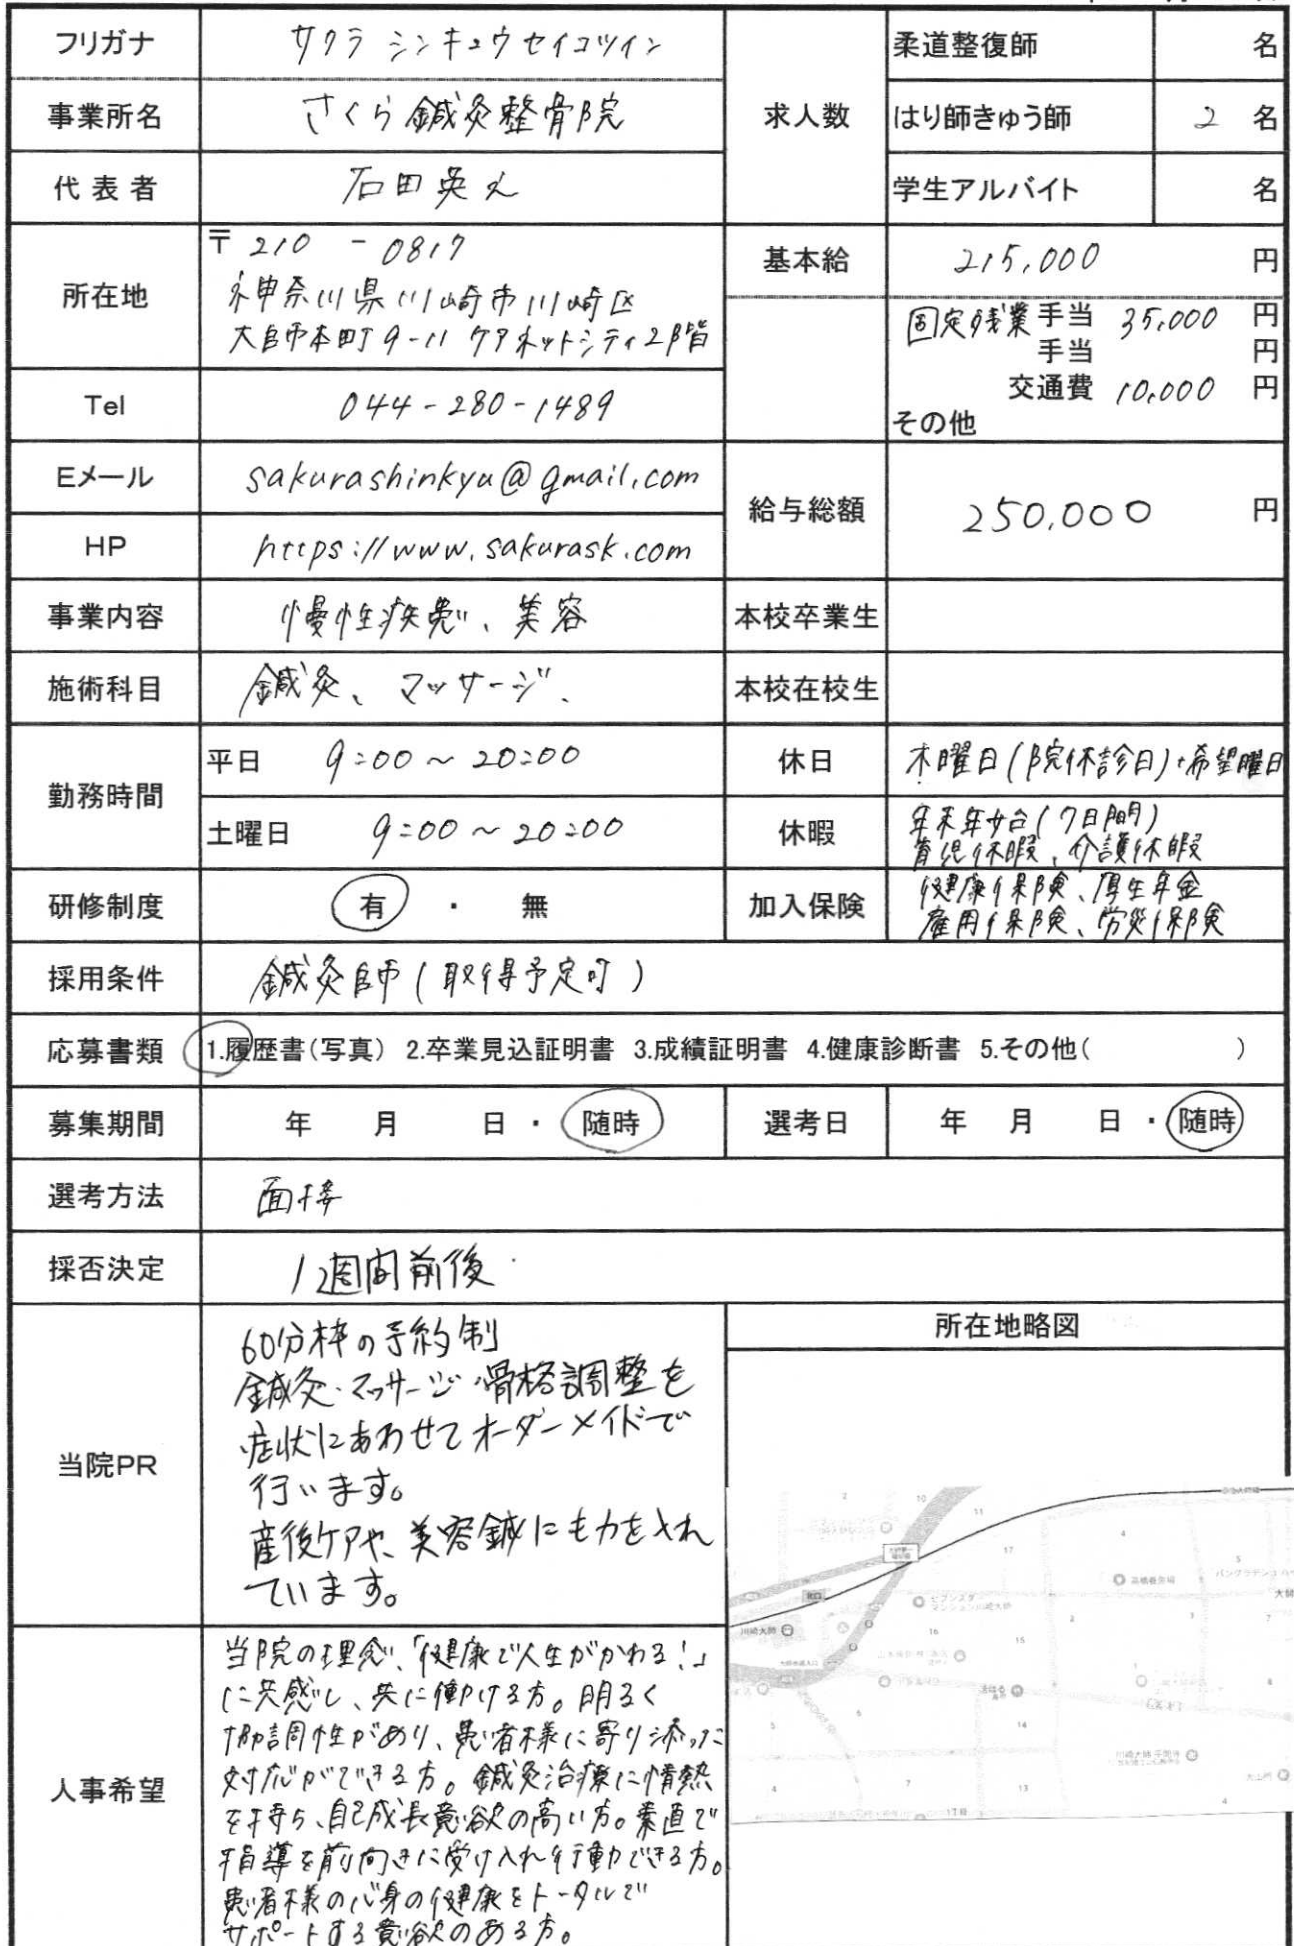 フリガナ サクラ シンキュウセイコツイン
事業所名 さくら鍼灸整骨院
代表者 石田英
求人数
柔道整復師 名
はり師きゅう師 2 名
学生アルバイト 名
所在地 〒210-0817
神奈川県川崎市川崎区
大師本町9-11 ケアネットシティ2階
基本給 215,000 円
固定残業手当 35,000 円
手当 円
交通費 10,000 円
その他
Tel 044-280-1489
Eメール sakurashinkyu@gmail.com
HP https://www.sakurask.com
給与総額 250,000 円
事業内容 慢性疾患、美容
本校卒業生
施術科目 鍼灸、マッサージ、
本校在校生
勤務時間 平日 9:00~20:00
土曜日 9:00~20:00
休日 木曜日(院休診日)+希望曜日
休暇 年末年始(7日間)
育児休暇、介護休暇
研修制度 有 ・ 無
加入保険 健康保険、厚生年金
雇用保険、労災保険
採用条件 鍼灸師(取得予定可)
応募書類 1.履歴書(写真) 2.卒業見込証明書 3.成績証明書 4.健康診断書 5.その他( )
募集期間 年 月 日・ 随時
選考日 年 月 日・ 随時
選考方法 面接
採否決定 1週間前後
当院PR
60分枠の予約制
鍼灸・マッサージ・骨格調整を
症状にあわせてオーダーメイドで
行います。
産後ケアや、美容鍼にも力を入れ
ています。
所在地略図
川崎大師
人事希望
当院の理念、「健康で人生がかわる!」
に共感し、共に働ける方。明るく
協調性があり、患者様に寄り添った
対応ができる方。鍼灸治療に情熱
を持ち、自己成長意欲の高い方。素直で
指導を前向きに受け入れ行動できる方。
患者様の心身の健康をトータルで
サポートする意欲のある方。